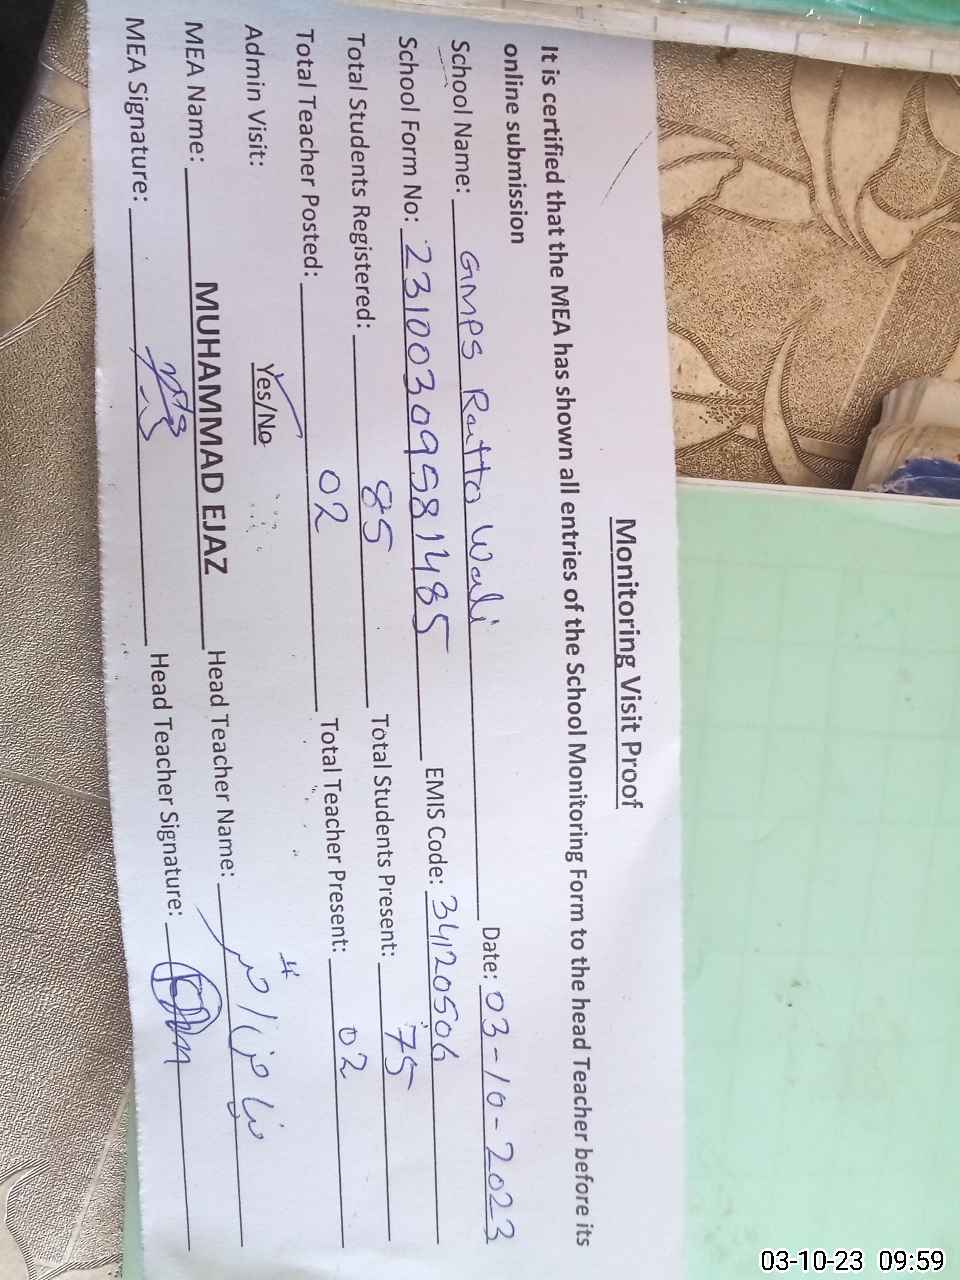 Monitoring Visit Proof
It is certified that the MEA has shown all entries of the School Monitoring Form to the head Teacher before its
online submission
School Name: GMPS Ratto Wali Date: 03-10-2023
School Form No: 23100309581485 EMIS Code: 34120506
Total Students Registered: 85 Total Students Present: 75
Total Teacher Posted: 02 Total Teacher Present: 02
Admin Visit: Yes/No
MEA Name: MUHAMMAD EJAZ Head Teacher Name:
MEA Signature: Head Teacher Signature:
03-10-23 09:59